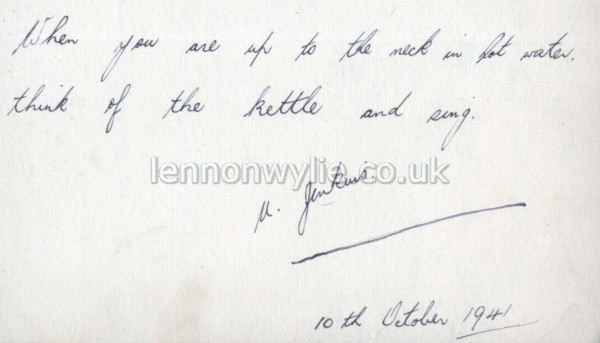 When you are up to the neck in hot water.
think of the kettle and sing.
lennonwylie.co.uk
M. Jenkins.
10th October 1941